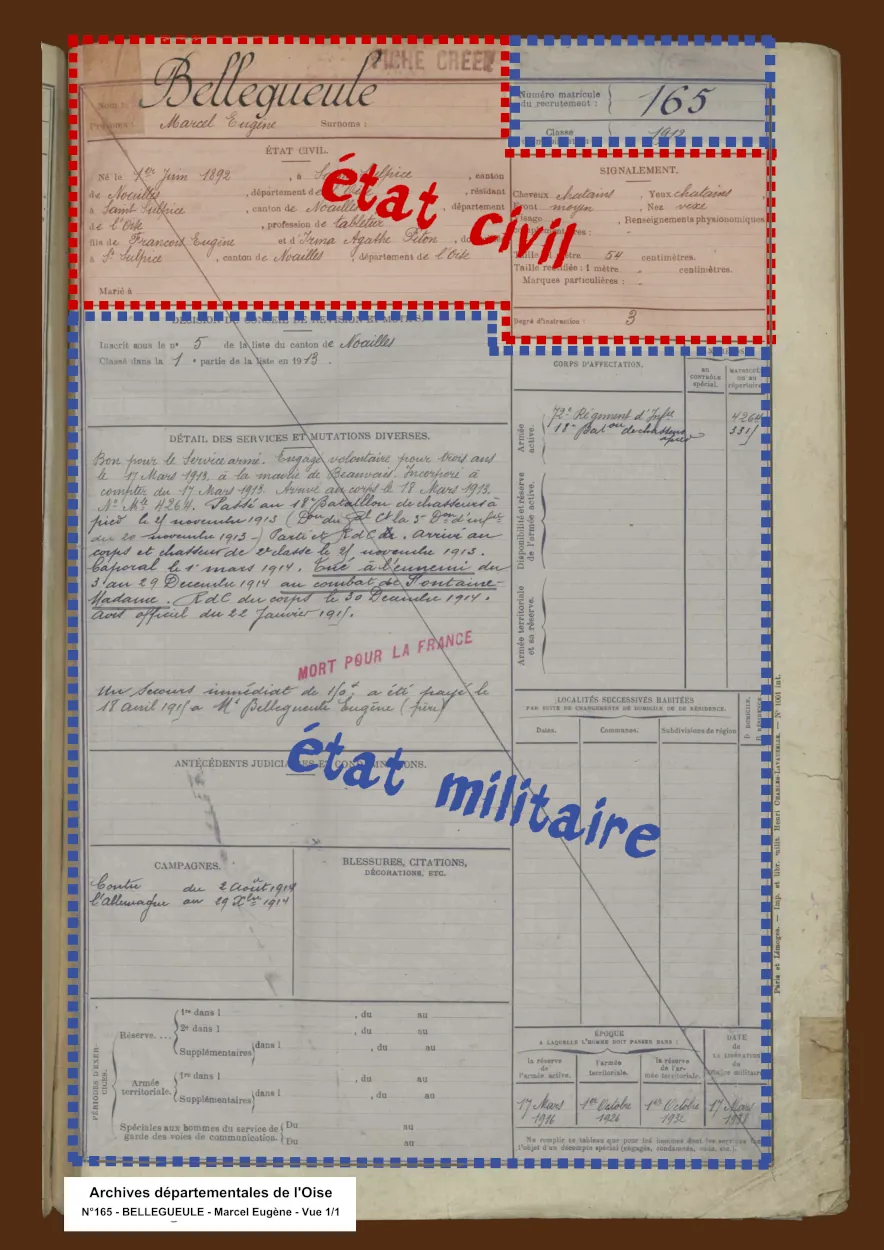 FICHE CREEE
Bellegueule
Nom :
Prénoms : Marcel Eugène Surnoms :
Numéro matricule
du recrutement : 165
Classe
ÉTAT CIVIL.
Né le 1er Juin 1892, à St Sulpice, canton
de Noailles, département de l'Oise, résidant
à Saint Sulpice, canton de Noailles, département
de l'Oise, profession de tabletier
fils de François Eugène et d'Irma Agathe Piton, do
à St Sulpice, canton de Noailles, département de l'Oise
Marié à
état civil
SIGNALEMENT.
Cheveux chatains, Yeux chatains
Front moyen, Nez vexe
Visage, Renseignements physionomiques
complémentaires :
Taille : 1 mètre 54 centimètres.
Taille rectifiée : 1 mètre " centimètres.
Marques particulières : "
Degré d'instruction : 3
DÉCISION DU CONSEIL DE RÉVISION ET MOTIFS.
Inscrit sous le n° 5 de la liste du canton de Noailles
Classé dans la 1e partie de la liste en 1913.
DÉTAIL DES SERVICES ET MUTATIONS DIVERSES.
Bon pour le Service armé. Engagé volontaire pour trois ans
le 17 Mars 1913, à la mairie de Beauvais. Incorporé à
compter du 17 Mars 1913. Arrivé au corps le 18 Mars 1913.
No Mle 4264. Passé au 18e Bataillon de chasseurs à
pied le 21 novembre 1913 (Don du Gal Ct la 5e Don d'infie
du 20 novembre 1913 -) Parti et RdC de. Arrivé au
corps et chasseur de 2e classe le 21 novembre 1913.
Caporal le 1er mars 1914. Tué à l'ennemi du
3 au 29 Decembre 1914 au combat de Fontaine-
Madame. RdC du corps le 30 Decembre 1914.
avis officiel du 22 Janvier 1915.
MORT POUR LA FRANCE
Un Secours immédiat de 150f a été payé le
18 avril 1915 a Mr Bellegueule Eugène (père)
état militaire
ANTÉCÉDENTS JUDICIAIRES ET CONDAMNATIONS.
CAMPAGNES.
Contre du 2 Août 1914
l'Allemagne au 29 Xbre 1914
BLESSURES, CITATIONS,
DÉCORATIONS, ETC.
PÉRIODES D'EXERCICES.
Réserve....
1re dans l , du au
2e dans l , du au
Supplémentaires dans l , du au
Armée
territoriale.
1re dans l , du au
Supplémentaires dans l , du au
Spéciales aux hommes du service de
garde des voies de communication.
Du au
Du au
CORPS D'AFFECTATION.
AU
CONTRÔLE
spécial.
MATRICULE
ou au
répertoire
Armée
active.
72e Régiment d'Infie 4264
18e Baton de chasseurs 3315
à pied
Disponibilité et réserve
de l'armée active.
Armée territoriale
et sa réserve.
LOCALITÉS SUCCESSIVES HABITÉES
PAR SUITE DE CHANGEMENTS DE DOMICILE OU DE RÉSIDENCE.
Dates. Communes. Subdivisions de région
D. DOMICILE.
R. RÉSIDENCE.
ÉPOQUE
A LAQUELLE L'HOMME DOIT PASSER DANS :
la réserve
de
l'armée active.
l'armée
territoriale.
la réserve
de l'ar-
mée territoriale.
DATE
de
LA LIBÉRATION
du
service militaire
17 Mars
1916
1er Octobre
1926
1er Octobre
1932
17 Mars
1938
Ne remplir ce tableau que pour les hommes dont les services font
l'objet d'un décompte spécial (engagés, condamnés, omis, etc.).
Paris et Limoges. — Imp. et libr. milit. Henri CHARLES-LAVAUZELLE. — N° 1001 int.
Archives départementales de l'Oise
N°165 - BELLEGUEULE - Marcel Eugène - Vue 1/1